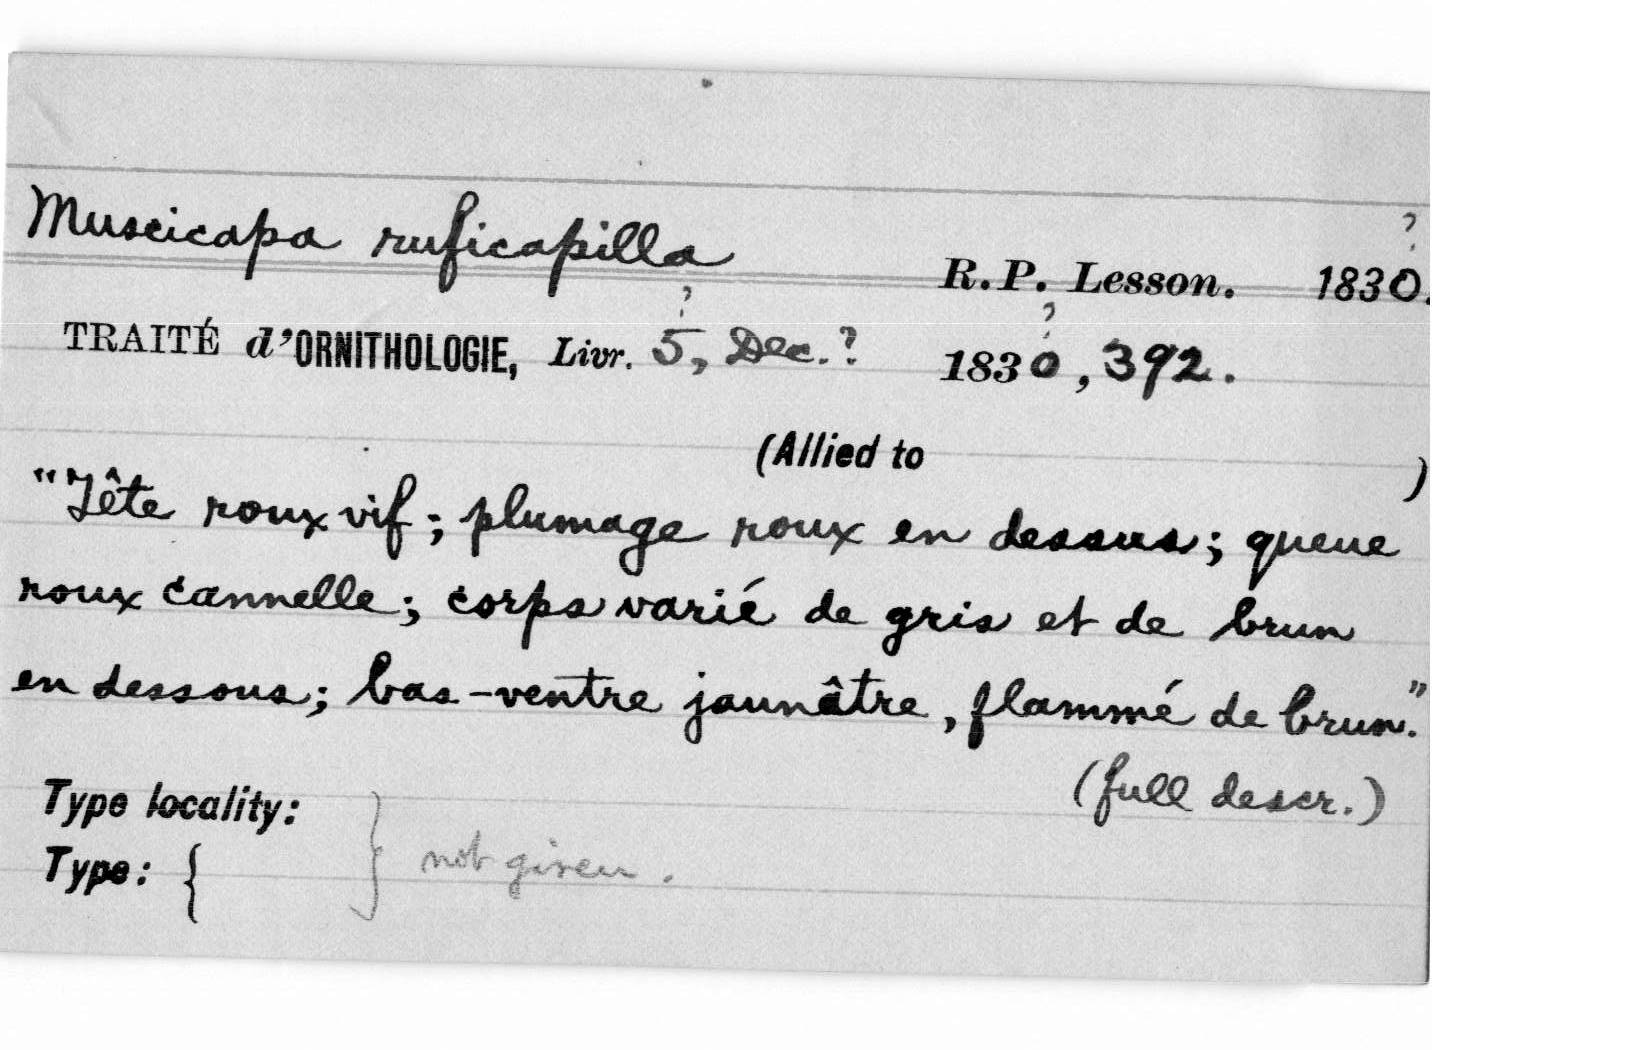 ?
Muscicapa ruficapilla R.P. Lesson. 1830.
? ?
TRAITÉ d'ORNITHOLOGIE, Livr. 5, Dec.? 1830, 392.
(Allied to )
"Tête roux vif; plumage roux en dessus; queue
roux cannelle; corps varié de gris et de brun
en dessous; bas-ventre jaunâtre, flammé de brun."
(full descr.)
Type locality:
Type: { } not given.